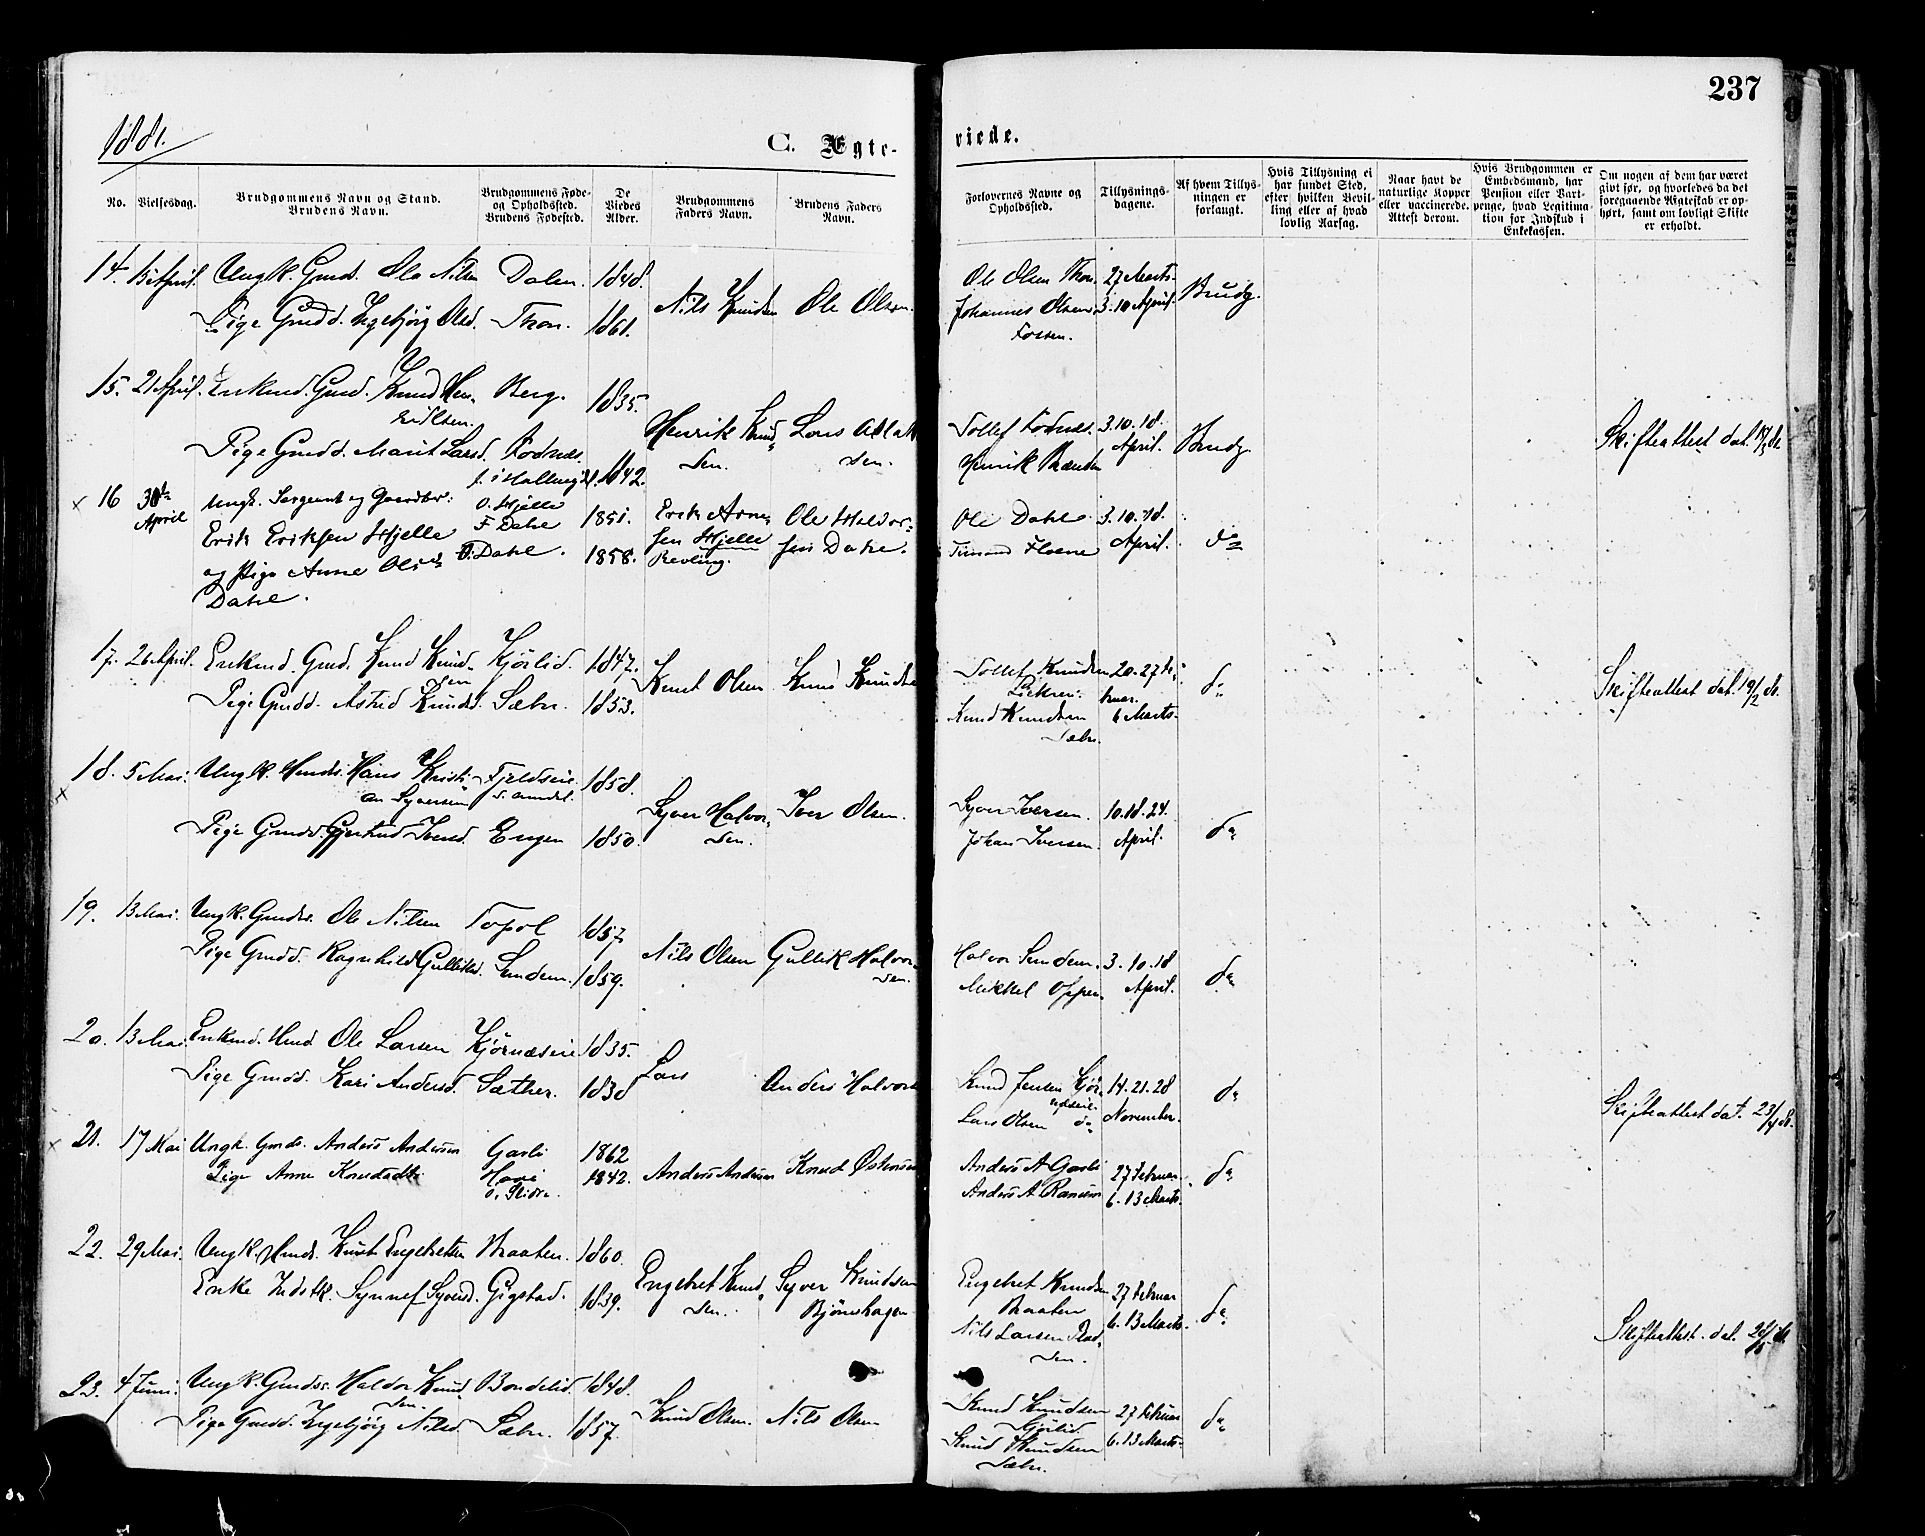 237
1881.
C. Ægte-
viede.
No.
Vielsesdag.
Brudgommens Navn og Stand.
Brudens Navn.
Brudgommens Føde-
og Opholdssted.
Brudens Fødested.
De
Viedes
Alder.
Brudgommens
Faders Navn.
Brudens Faders
Navn.
Forlovernes Navne og
Opholdssted.
Tillysnings-
dagene.
Af hvem Tillys-
ningen er
forlangt.
Hvis Tillysning ei
har fundet Sted,
efter hvilken Bevil-
ling eller af hvad
lovlig Aarsag.
Naar havt de
naturlige Kopper
eller vaccinerede.
Attest derom.
Hvis Brudgommen er
Embedsmand, har
Pension eller Vart-
penge, hvad Legitima-
tion for Indskud i
Enkekassen.
Om nogen af dem har været
givt før, og hvorledes da det
foregaaende Ægteskab er op-
hørt, samt om lovligt Skifte
er erholdt.
14. 15 April. Ungk. Gmds. Ole Nilsen Dalen. 1848.
Pige Gmdd. Ingebjørg Olsd. Thon. 1861.
Nils Knudsen Ole Olsen.
Ole Olsen Thon. 27 Marts.
Johannes Olsen 3. 10 April. Brudg.
Fossen.
15. 21 April. Enkemd. Gmd. Knud Hen-
riksen. Berg. 1835.
Pige Gmdd. Marit Larsd. Fodnæs.
f. i Hallingd. 1842.
Henrik Knud-
sen.
Lars Aslak
sen.
Tollef Fodnæs. 3. 10. 18.
Henrik Brænden April. Brudg
Skifteattest dat.
16 30te
April
Ungk. Sergeant og Gaardbr:
Erik Eriksen Hjelle
og Pige Anne Olsd
Dahl.
O. Hjelle
F. Dahl
B. Dahl.
1851.
1858.
Erik Arne-
sen Hjelle
Revling.
Ole Halvor-
sen Dahl.
Ole Dahl 3. 10. 18.
April. do
17. 26 April. Enkemd. Gmd. Knud Knud-
sen Kjørlid. 1847.
Pige Gmdd. Astrid Knudsd. Sæbr. 1853.
Knut Olsen Knud Knudsen
Tollef Knudsen 20. 27 Fe-
bruar.
Knud Knudsen 6 Marts.
Sæbr.
do
Skifteattest dat. 19/2 81.
18. 5 Mai. Ungk. Hmds. Hans Kristi-
an Syversen Fjeldseie
S. Aurdal. 1858.
Pige Gmdd. Gjertrud Iversd. Engen 1850.
Syver Halvor-
sen.
Iver Olsen.
Syver Iversen. 10. 18. 24.
Johan Iversen. April. do
19. 13 Mai. Ungk. Gmds. Ole Nilsen Fopol 1857.
Pige Gmdd. Ragnhild Gulliksd. Sundem. 1859.
Nils Olsen Gullik Halvor-
sen.
Halvor Sundem. 3. 10. 18
Mikkel Oppen. April. do
20. 13 Mai. Enkemd. Hmd Ole Larsen Kjørnæseie 1835.
Pige Gmdd. Kari Andersd. Sæther. 1838
Lars Anders Halvorsen
Knud Jensen Kjør-
næseie. 14. 21. 28
Lars Olsen do November. do
Skifteattest dat. 23/4 81.
21. 17 Mai Ungk. Gmds. Anders Andersen Garli 1862
Pige Anne Knudsdtr Hovi
v. Slidre. 1842.
Anders Andersen Knud Østensen
Anders A Garli 27 Februar
Anders A Ranum 6. 13 Marts. do
22. 29 Mai. Ungk. Hmds. Knut Engebretsen Braaten. 1860.
Enke Indstk. Synnøf Syversd. Gigstad. 1839.
Engebret Knud-
sen.
Syver Knudsen
Bjørnhagen
Engebret Knudsen 27 Februar
Braaten 6. 13 Marts. do
Nils Larsen
Skifteattest. dat.
23. 4 Juni. Ungk. Gmds. Haldor Knud-
sen. Bondelid. 1848.
Pige Gmdd. Ingebjørg Nilsd. Sæbr. 1857.
Knud Olsen. Nils Olsen
Knud Knudsen 27 Februar
Kjørlid 6. 13 Marts. do
Knud Knudsen
Sæbr.